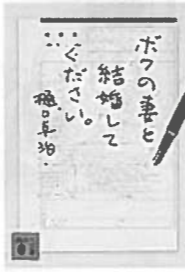 ボクの妻と
結婚して
ください。
樋口卓治